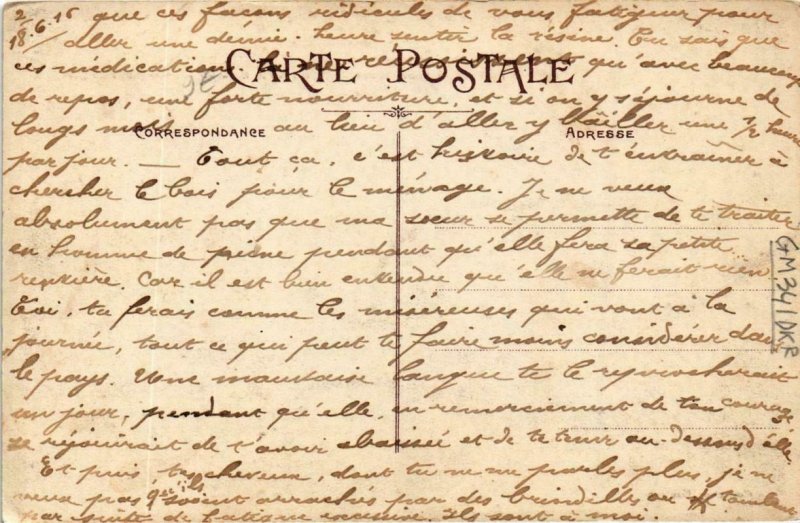 2
18.6.16 que ces façons ridicules de vous fatiguer pour
aller une demie-heure sentir la résine. Tu sais que
ces médications qu'avec beaucoup
CARTE POSTALE
de repos, une forte nourriture, et si on y séjourne de
longs mois au lieu d'aller y bâiller une 1/2 heure
CORRESPONDANCE
ADRESSE
par jour. — Tout ça, c'est histoire de t'entraîner à
chercher le bois pour le ménage. Je ne veux
absolument pas que ma sœur se permette de te traiter
en homme de peine pendant qu'elle fera sa petite
rentière. Car il est bien entendu que qu'elle ne ferait rien
Toi, tu ferais comme les miséreuses qui vont à la
journée, tout ce qui peut te faire moins considérer dans
le pays. Une mauvaise langue te le reprocherait
un jour, pendant qu'elle, en remerciement de ton courage
se réjouirait de t'avoir abaissée et de te tenir au-dessous d'elle
Et puis tes cheveux, dont tu ne me parles plus, je ne
veux pas qu'ils soient arrachés par des brindilles ou tombent
par suite de fatigue excessive. Ils sont à moi.
GM341DKR